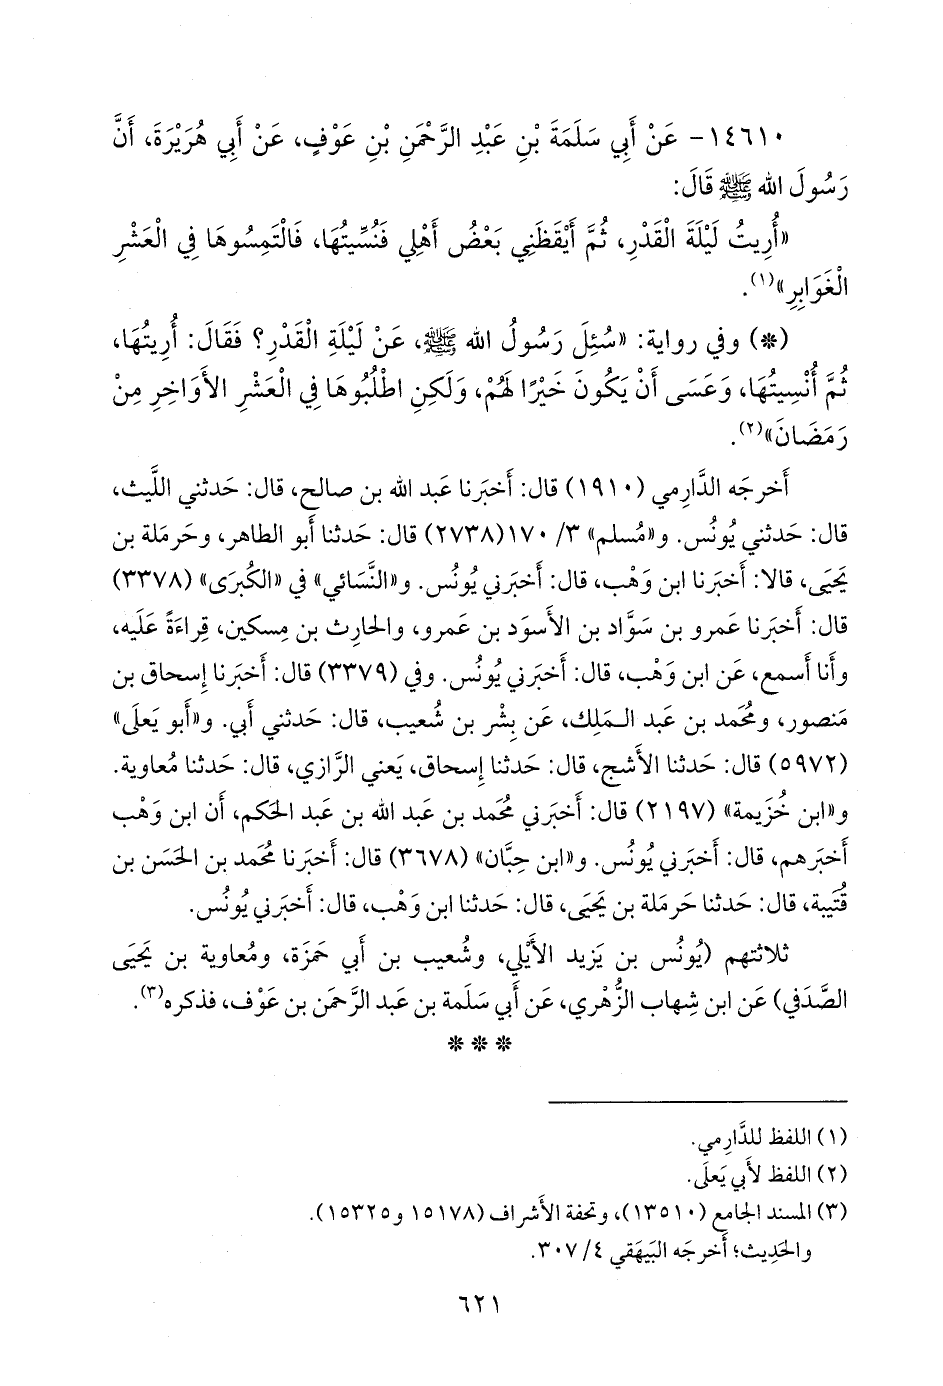 ١٤٦١٠- عَنْ أَبِي سَلَمَةَ بْنِ عَبْدِ الرَّحْمَنِ بْنِ عَوْفٍ، عَنْ أَبِي هُرَيْرَةَ، أَنَّ
رَسُولَ الله ﷺ قَالَ:
«أُرِيتُ لَيْلَةَ الْقَدْرِ، ثُمَّ أَيْقَظَنِي بَعْضُ أَهْلِي فَنُسِّيتُهَا، فَالْتَمِسُوهَا فِي الْعَشْرِ
الْغَوَابِرِ»(١).
(*) وفي رواية: «سُئِلَ رَسُولُ الله ﷺ، عَنْ لَيْلَةِ الْقَدْرِ؟ فَقَالَ: أُرِيتُهَا،
ثُمَّ أُنْسِيتُهَا، وَعَسَى أَنْ يَكُونَ خَيْرًا لَهُمْ، وَلَكِنِ اطْلُبُوهَا فِي الْعَشْرِ الأَوَاخِرِ مِنْ
رَمَضَانَ»(٢).
أَخرجَه الدَّارِمي (١٩١٠) قال: أَخبَرنا عَبد الله بن صالح، قال: حَدثني اللَّيث،
قال: حَدثني يُونُس. و«مُسلم» ٣/ ١٧٠(٢٧٣٨) قال: حَدثنا أَبو الطاهر، وحَرملة بن
يَحيَى، قالا: أَخبَرنا ابن وَهْب، قال: أَخبَرني يُونُس. و«النَّسَائي» في «الكُبرَى» (٣٣٧٨)
قال: أَخبَرنا عَمرو بن سَوَّاد بن الأَسوَد بن عَمرو، والحارِث بن مِسكين، قِراءَةً عَلَيه،
وأَنا أَسمع، عَن ابن وَهْب، قال: أَخبَرني يُونُس. وفي (٣٣٧٩) قال: أَخبَرنا إِسحاق بن
مَنصور، ومُحمد بن عَبد الـمَلِك، عَن بِشْر بن شُعيب، قال: حَدثني أَبي. و«أَبو يَعلَى»
(٥٩٧٢) قال: حَدثنا الأَشج، قال: حَدثنا إِسحاق، يَعني الرَّازي، قال: حَدثنا مُعاوية.
و«ابن خُزَيمة» (٢١٩٧) قال: أَخبَرني مُحمد بن عَبد الله بن عَبد الحَكم، أَن ابن وَهْب
أَخبَرهم، قال: أَخبَرني يُونُس. و«ابن حِبَّان» (٣٦٧٨) قال: أَخبَرنا مُحمد بن الحَسَن بن
قُتَيبة، قال: حَدثنا حَرملة بن يَحيَى، قال: حَدثنا ابن وَهْب، قال: أَخبَرني يُونُس.
ثلاثتهم (يُونُس بن يَزيد الأَيْلي، وشُعيب بن أَبي حَمزَة، ومُعاوية بن يَحيَى
الصَّدَفي) عَن ابن شِهاب الزُّهْري، عَن أَبي سَلَمة بن عَبد الرَّحمَن بن عَوْف، فذكره(٣).
* * *
(١) اللفظ للدَّارِمي.
(٢) اللفظ لأَبي يَعلَى.
(٣) المسند الجامع (١٣٥١٠)، وتحفة الأَشراف (١٥١٧٨ و١٥٣٢٥).
والحَدِيث؛ أَخرجَه البَيهَقي ٤/ ٣٠٧.
٦٢١